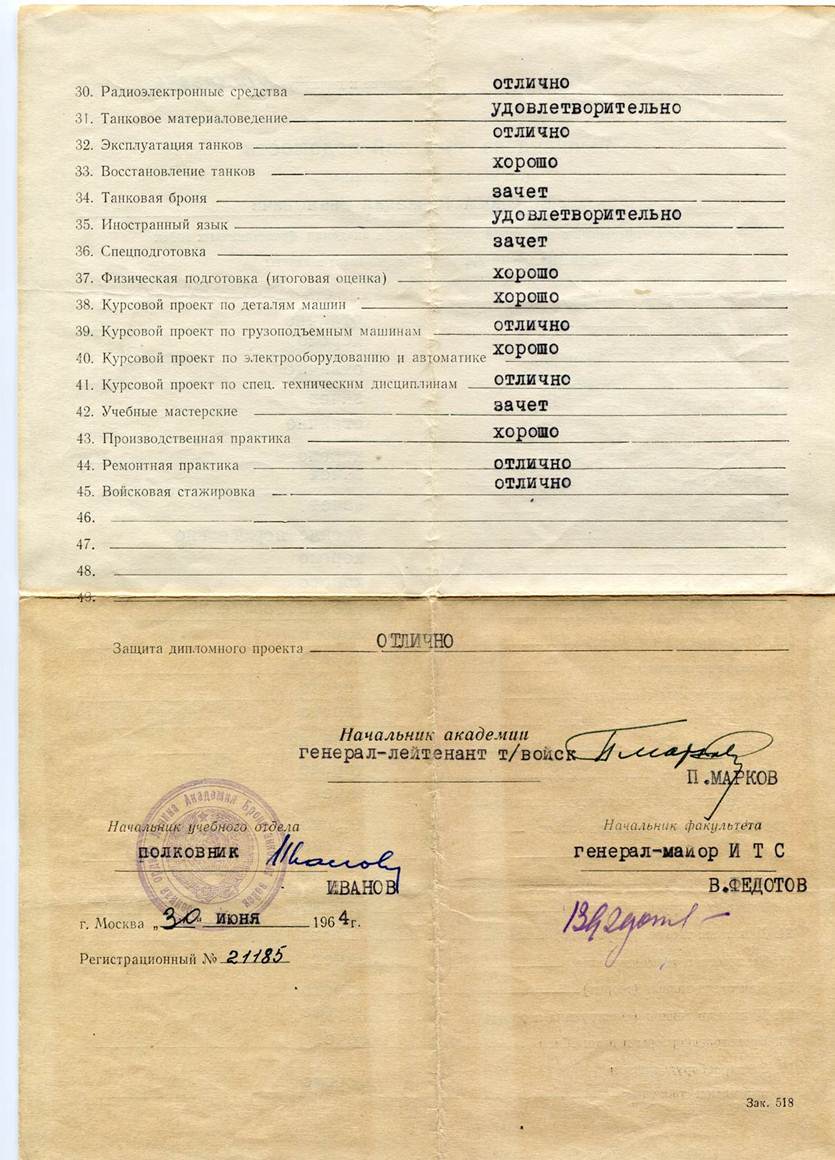 30. Радиоэлектронные средства отлично
31. Танковое материаловедение удовлетворительно
32. Эксплуатация танков отлично
33. Восстановление танков хорошо
34. Танковая броня зачет
35. Иностранный язык удовлетворительно
36. Спецподготовка зачет
37. Физическая подготовка (итоговая оценка) хорошо
38. Курсовой проект по деталям машин хорошо
39. Курсовой проект по грузоподъемным машинам отлично
40. Курсовой проект по электрооборудованию и автоматике хорошо
41. Курсовой проект по спец. техническим дисциплинам отлично
42. Учебные мастерские зачет
43. Производственная практика хорошо
44. Ремонтная практика отлично
45. Войсковая стажировка отлично
46.
47.
48.
49.
Защита дипломного проекта ОТЛИЧНО
Начальник академии
генерал-лейтенант т/войск
П.МАРКОВ
Академия
Начальник учебного отдела
полковник Иванов
ИВАНОВ
Начальник факультета
генерал-майор И Т С
В.ФЕДОТОВ
г. Москва „30" июня 1964г.
Регистрационный № 21185
Зак. 518